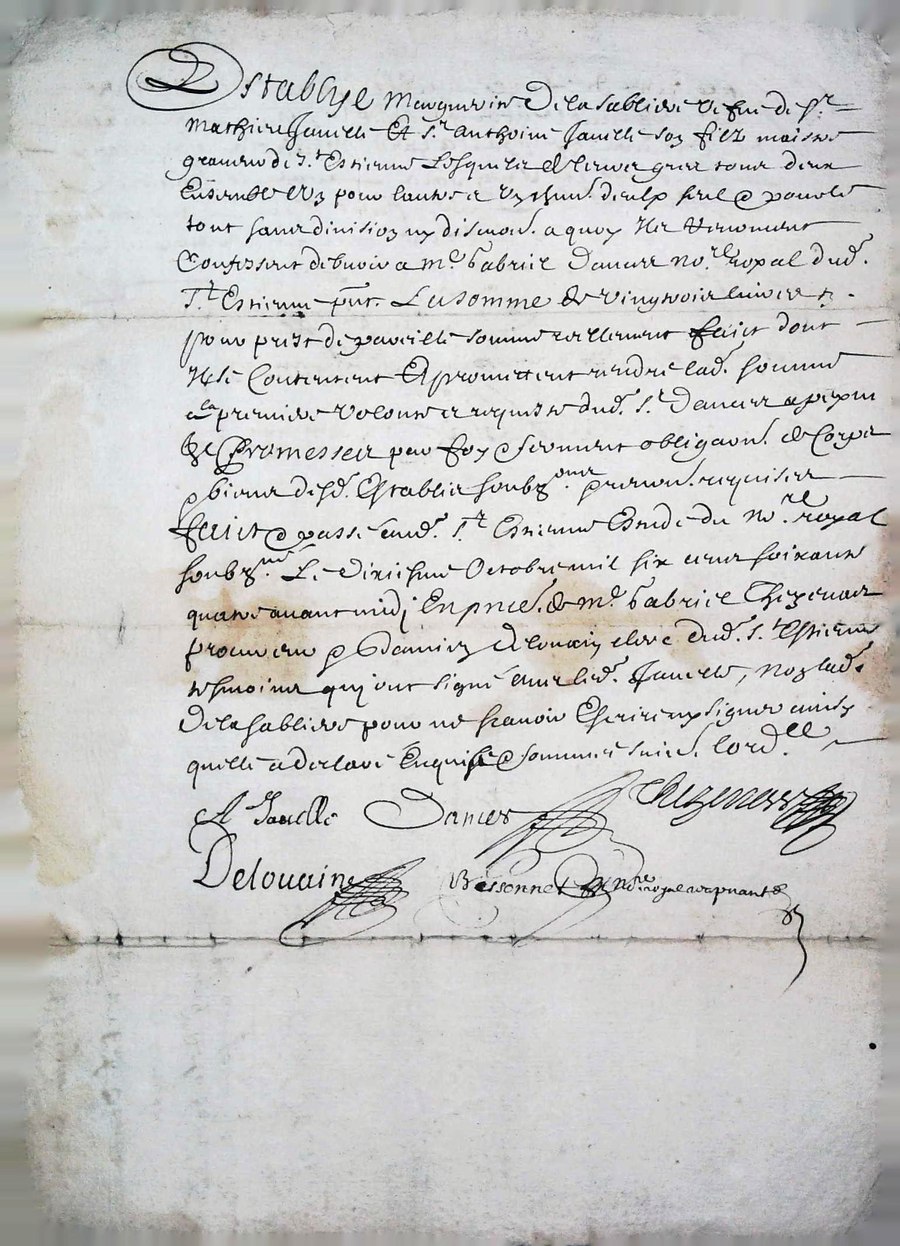 Establye Marguerite Delasabliere vefve de Sr
Mathieu Javelle Et Sr Anthoine Javelle son filz maistre
graveur de St Estienne Lesquelz de leur gré tous deux
Ensemble L'un pour l'autre & un chun. d'eulx seul & pour le
tout sans division ny discuon. a quoy Ilz Renoncent
Confessent debvoir a Me Gabriel Dancer nore royal dud.
St Estienne pnt. La somme de vingt livres ts.
pour prest de pareille somme reellement faict dont
Ilz se Contentent Et promettent rendre lad. somme
a la premiere volonté & requiste dud. Sr Dancer a peyne
&c Promesses par foy & serement obligaon. de Corps
& biens desd. Establis soubz.ons renon. requises
faict & passé aud. St Estienne Estude du nore royal
soubz.né Le dixiesme Octobre mil six cens soixante
quatre avant midj En pnce. de Me Gabriel Chezenas
procureur & Damien Delouain clerc dud. St Estienne
tesmoins quj ont signé avec led. Javelle, non lad.
Delasabliere pour ne scavoir Escrire ny signer ainsy
quelle a declaré Enquise & sommée suivt. lord.ce
A Javelle Dancer Chezenas
Delouain Bessonnet nore royal recepvant